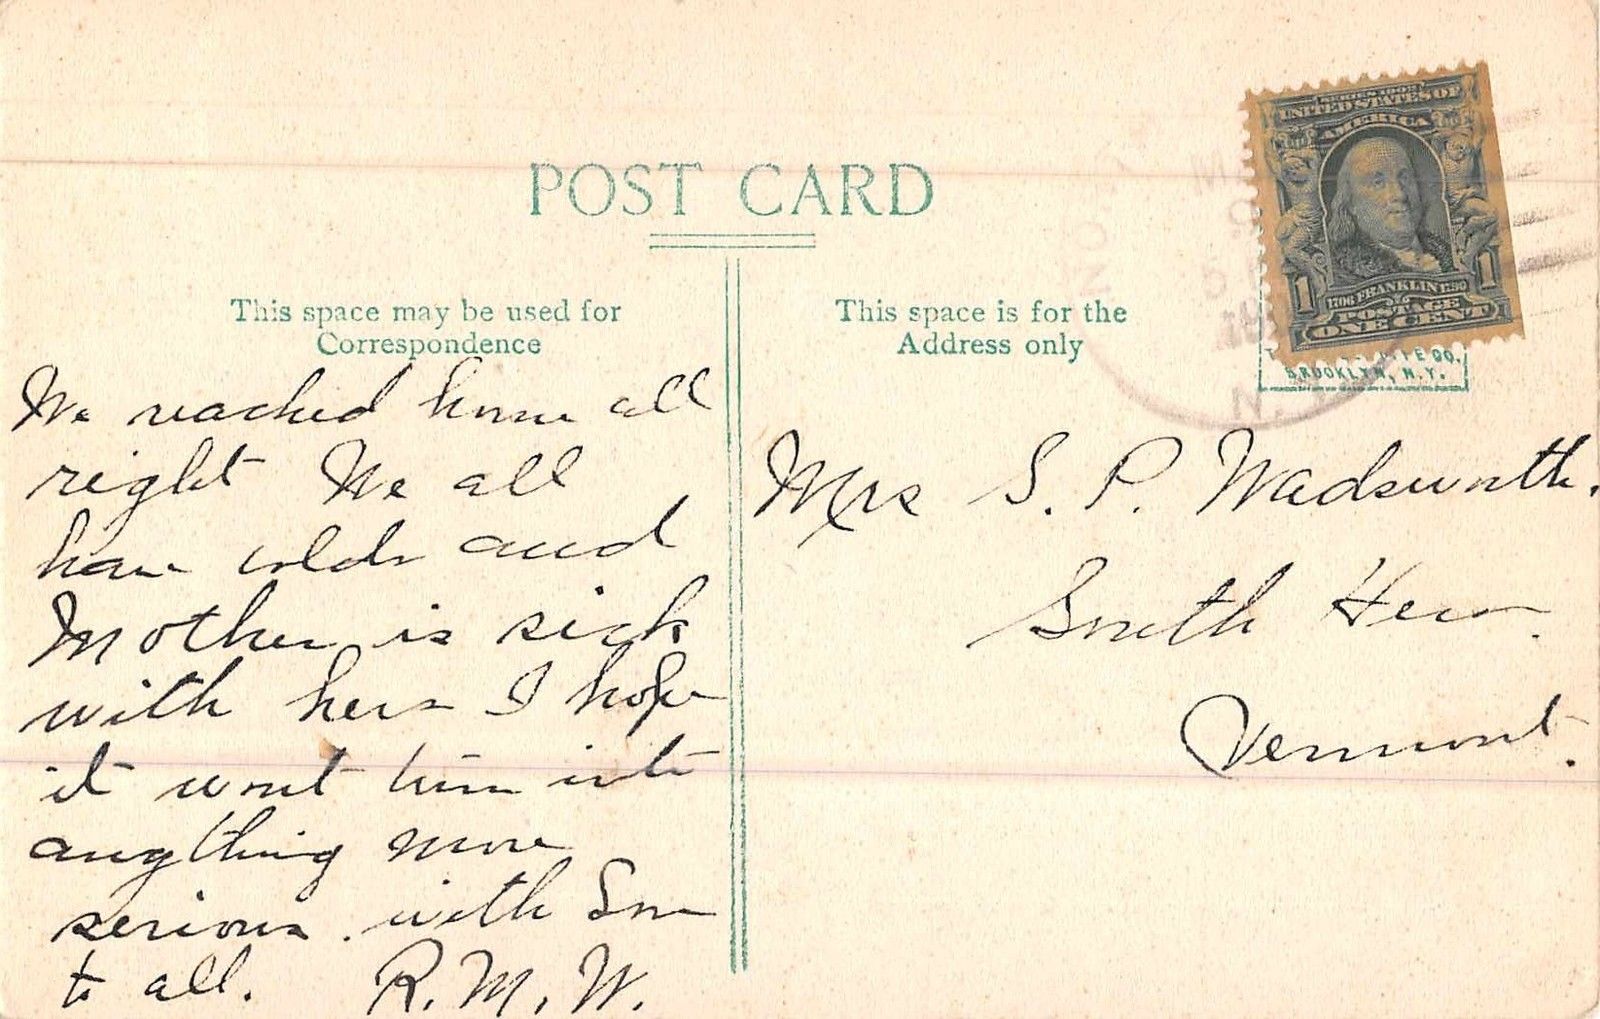 POST CARD
This space may be used for
Correspondence
This space is for the
Address only
SERIES 1902
UNITED STATES OF
AMERICA
1
1
1706 FRANKLIN 1790
POSTAGE
ONE CENT
CO.
BROOKLYN, N.Y.
N.
We reached home all
right We all
have colds and
Mother is sick
with hers I hope
it wont turn into
anything more
serious. with love
to all. R.M.W.
Mrs S. P. Wadsworth.
South Hero.
Vermont.